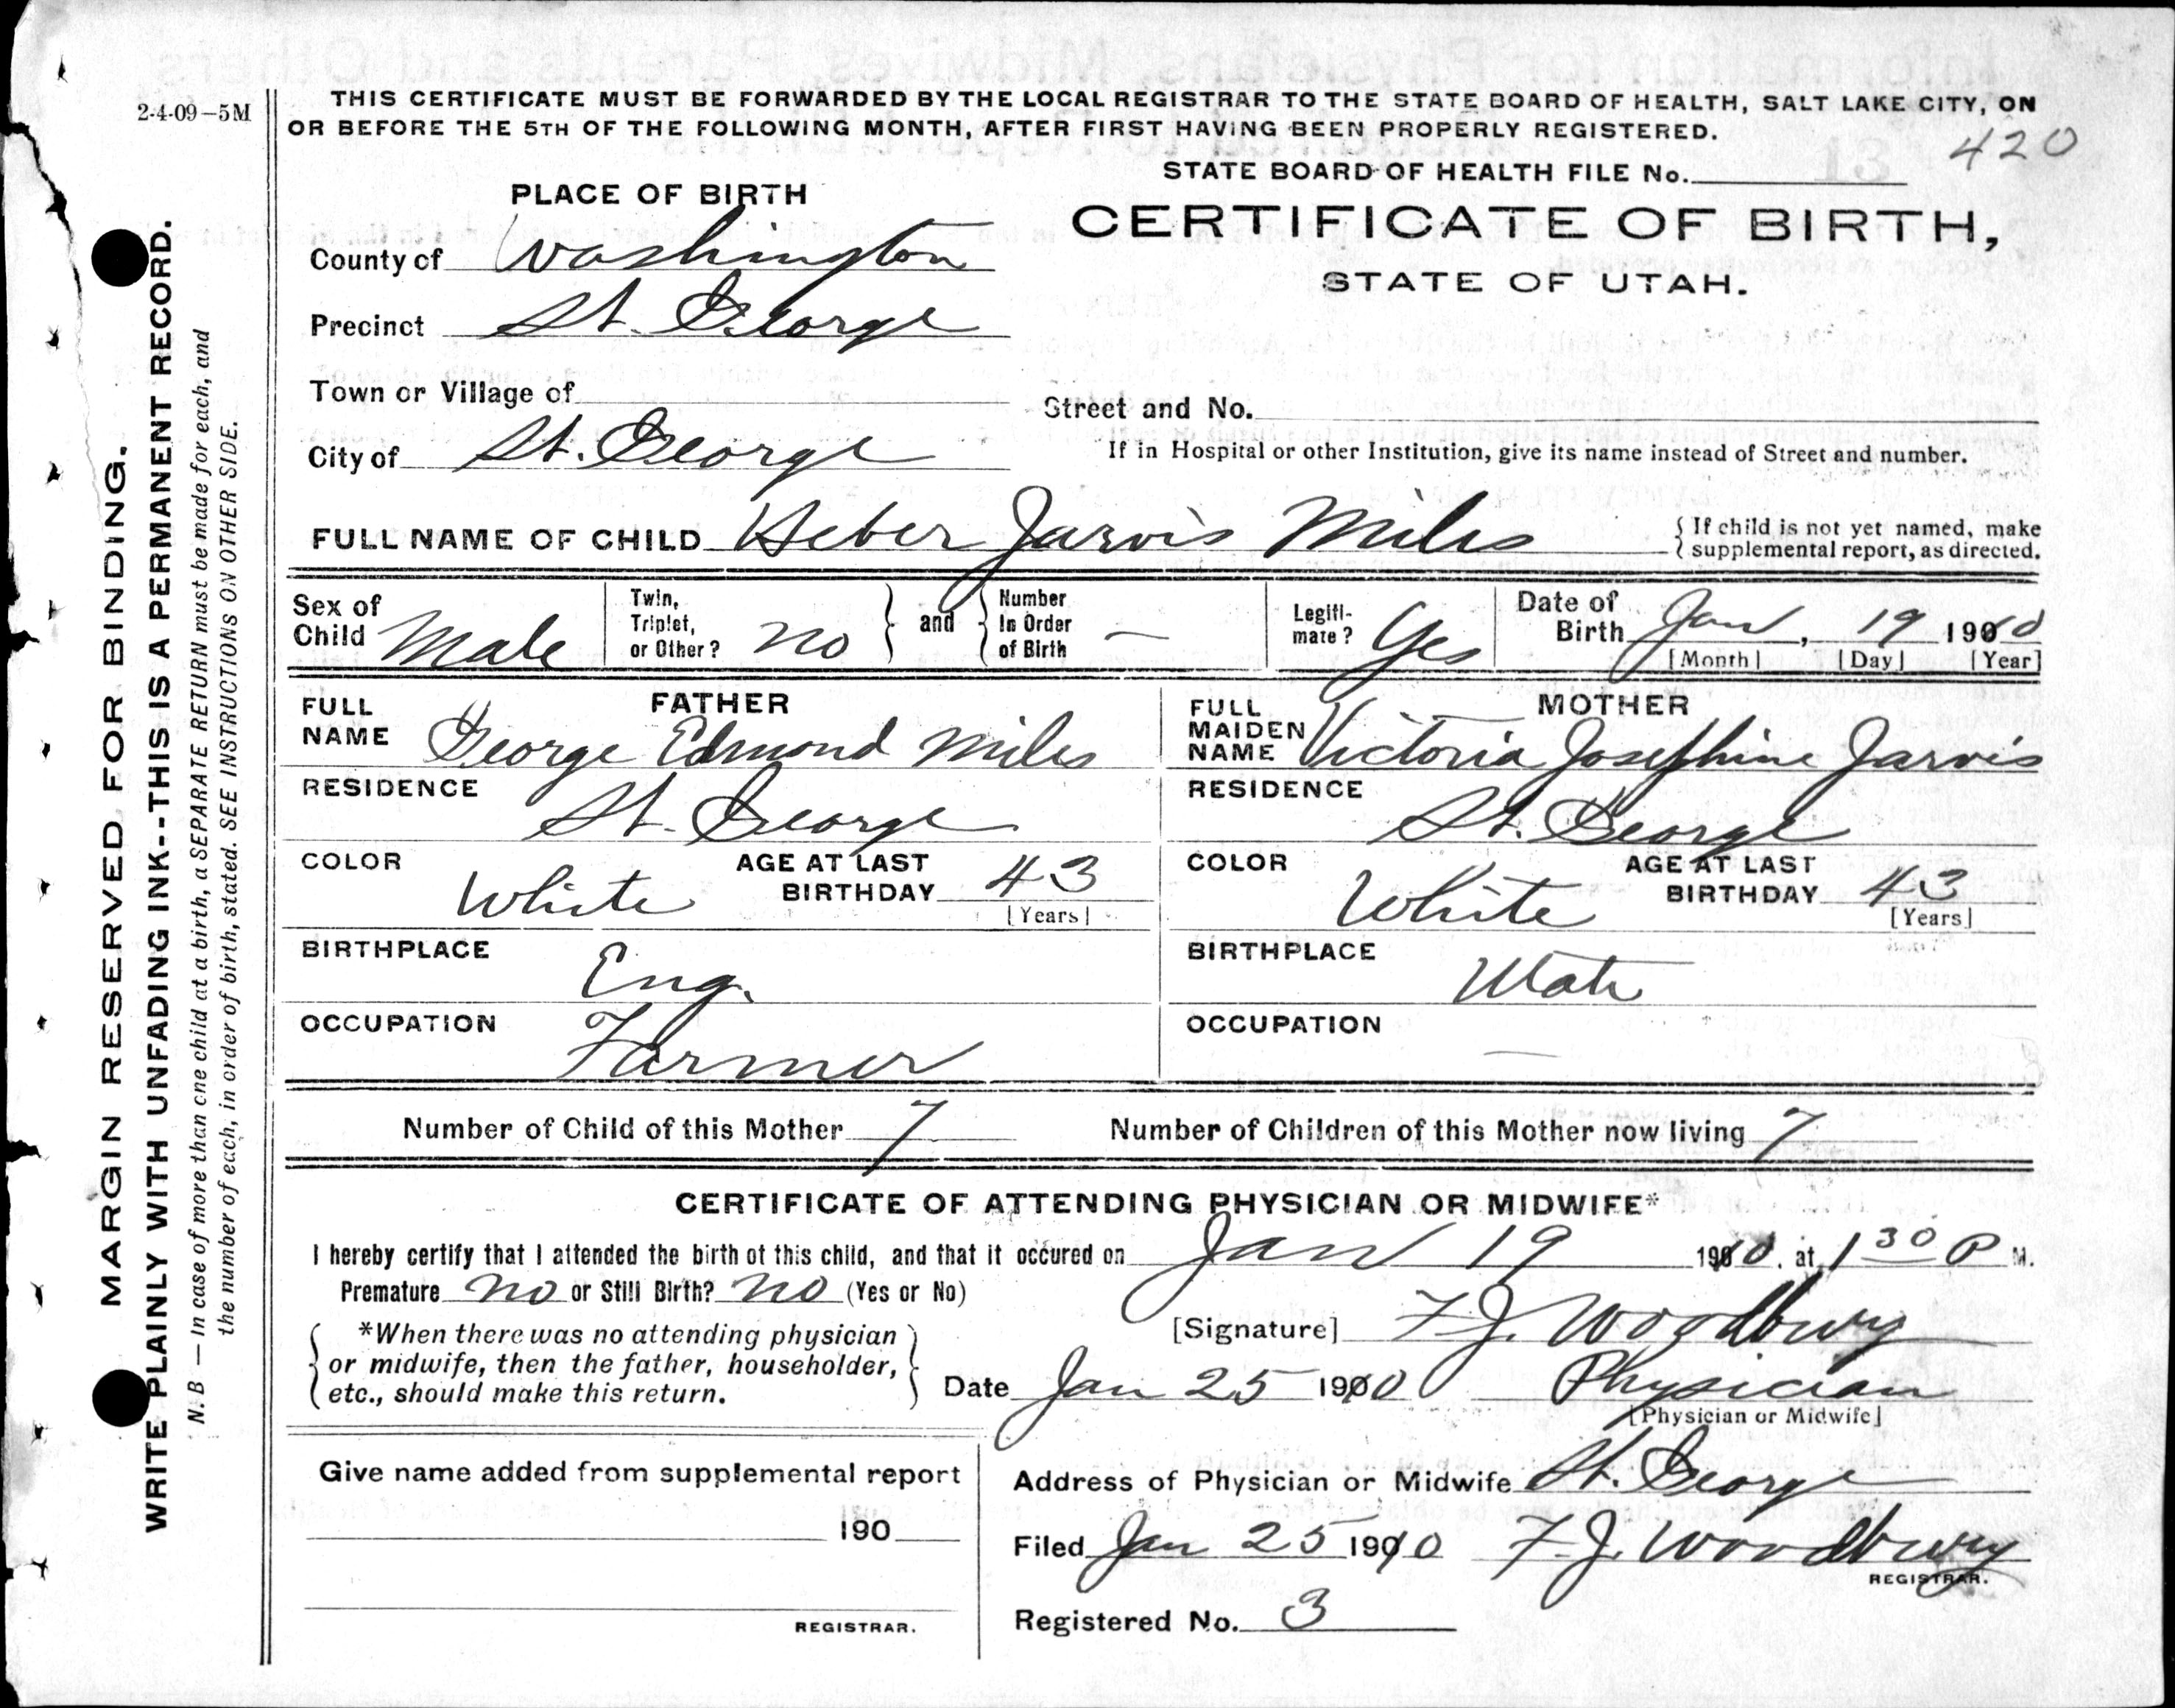 2-4-09–5M
THIS CERTIFICATE MUST BE FORWARDED BY THE LOCAL REGISTRAR TO THE STATE BOARD OF HEALTH, SALT LAKE CITY, ON
OR BEFORE THE 5TH OF THE FOLLOWING MONTH, AFTER FIRST HAVING BEEN PROPERLY REGISTERED.
420
STATE BOARD OF HEALTH FILE No.
PLACE OF BIRTH
CERTIFICATE OF BIRTH,
STATE OF UTAH.
County of Washington
Precinct St. George
Town or Village of
Street and No.
City of St. George
If in Hospital or other Institution, give its name instead of Street and number.
FULL NAME OF CHILD Heber Jarvis Miles
{ If child is not yet named, make
supplemental report, as directed.
Sex of Child Male
Twin, Triplet, or Other? no } and { Number In Order of Birth —
Legitimate? Yes
Date of Birth Jan, 19 1910
[Month] [Day] [Year]
FATHER
FULL NAME George Edmond Miles
RESIDENCE St. George
COLOR White AGE AT LAST BIRTHDAY 43
[Years]
BIRTHPLACE Eng.
OCCUPATION Farmer
MOTHER
FULL MAIDEN NAME Victoria Josephine Jarvis
RESIDENCE St. George
COLOR White AGE AT LAST BIRTHDAY 43
[Years]
BIRTHPLACE Utah
OCCUPATION —
Number of Child of this Mother 7 Number of Children of this Mother now living 7
CERTIFICATE OF ATTENDING PHYSICIAN OR MIDWIFE*
I hereby certify that I attended the birth of this child, and that it occured on Jan 19 1910. at 1 30 P M.
Premature no or Still Birth? no (Yes or No)
*When there was no attending physician
or midwife, then the father, householder,
etc., should make this return.
[Signature] F. J. Woodbury
Date Jan 25 1910 Physician
[Physician or Midwife]
Give name added from supplemental report
190
REGISTRAR.
Address of Physician or Midwife St. George
Filed Jan 25 1910 F. J. Woodbury
REGISTRAR.
Registered No. 3
MARGIN RESERVED FOR BINDING.
WRITE PLAINLY WITH UNFADING INK--THIS IS A PERMANENT RECORD.
N. B — In case of more than one child at a birth, a SEPARATE RETURN must be made for each, and
the number of each, in order of birth, stated. SEE INSTRUCTIONS ON OTHER SIDE.